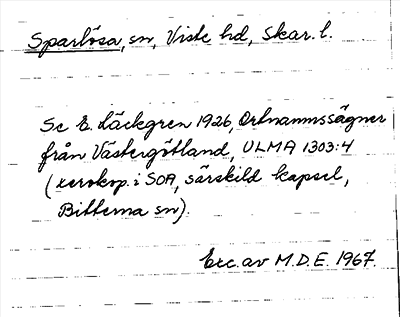 Sparlösa, sn, Viste hd, Skar. l.
Se E. Läckgren 1926, Ortnamnssägner
från Västergötland, ULMA 1303:4
(xerokop. i SOA, särskild kapsel,
Bitterna sn).
Exc av M.D.E. 1967.